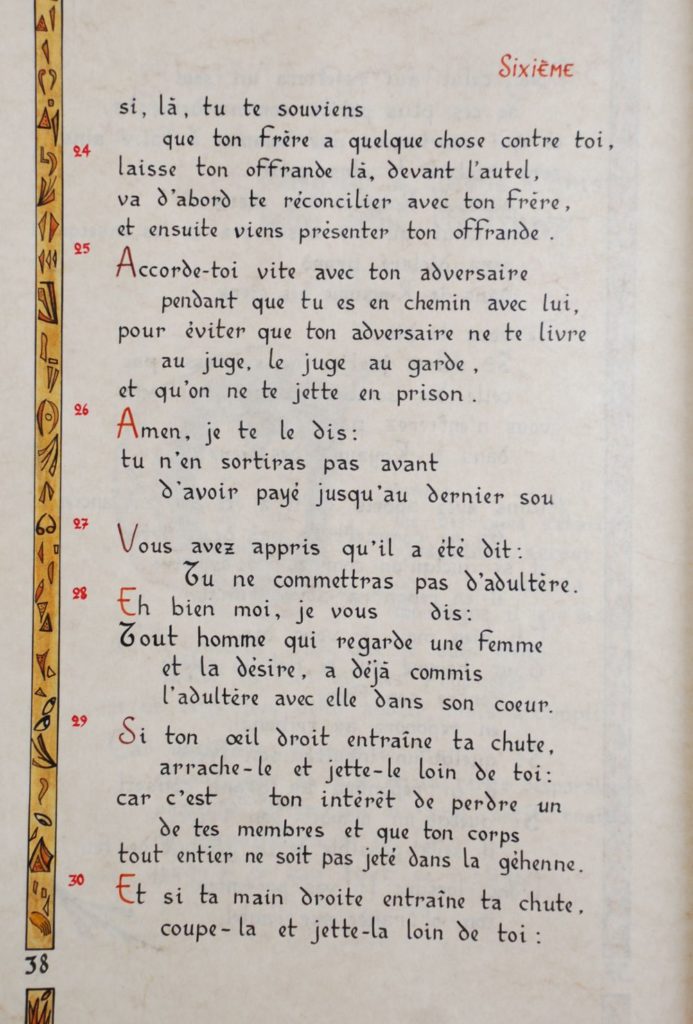 Sixième
si, là, tu te souviens
que ton frère a quelque chose contre toi,
24
laisse ton offrande là, devant l'autel,
va d'abord te réconcilier avec ton frère,
et ensuite viens présenter ton offrande.
25
Accorde-toi vite avec ton adversaire
pendant que tu es en chemin avec lui,
pour éviter que ton adversaire ne te livre
au juge, le juge au garde,
et qu'on ne te jette en prison.
26
Amen, je te le dis:
tu n'en sortiras pas avant
d'avoir payé jusqu'au dernier sou
27
Vous avez appris qu'il a été dit:
Tu ne commettras pas d'adultère.
28
Eh bien moi, je vous dis:
Tout homme qui regarde une femme
et la désire, a déjà commis
l'adultère avec elle dans son coeur.
29
Si ton œil droit entraîne ta chute,
arrache-le et jette-le loin de toi:
car c'est ton intérêt de perdre un
de tes membres et que ton corps
tout entier ne soit pas jeté dans la géhenne.
30
Et si ta main droite entraîne ta chute,
coupe-la et jette-la loin de toi:
38